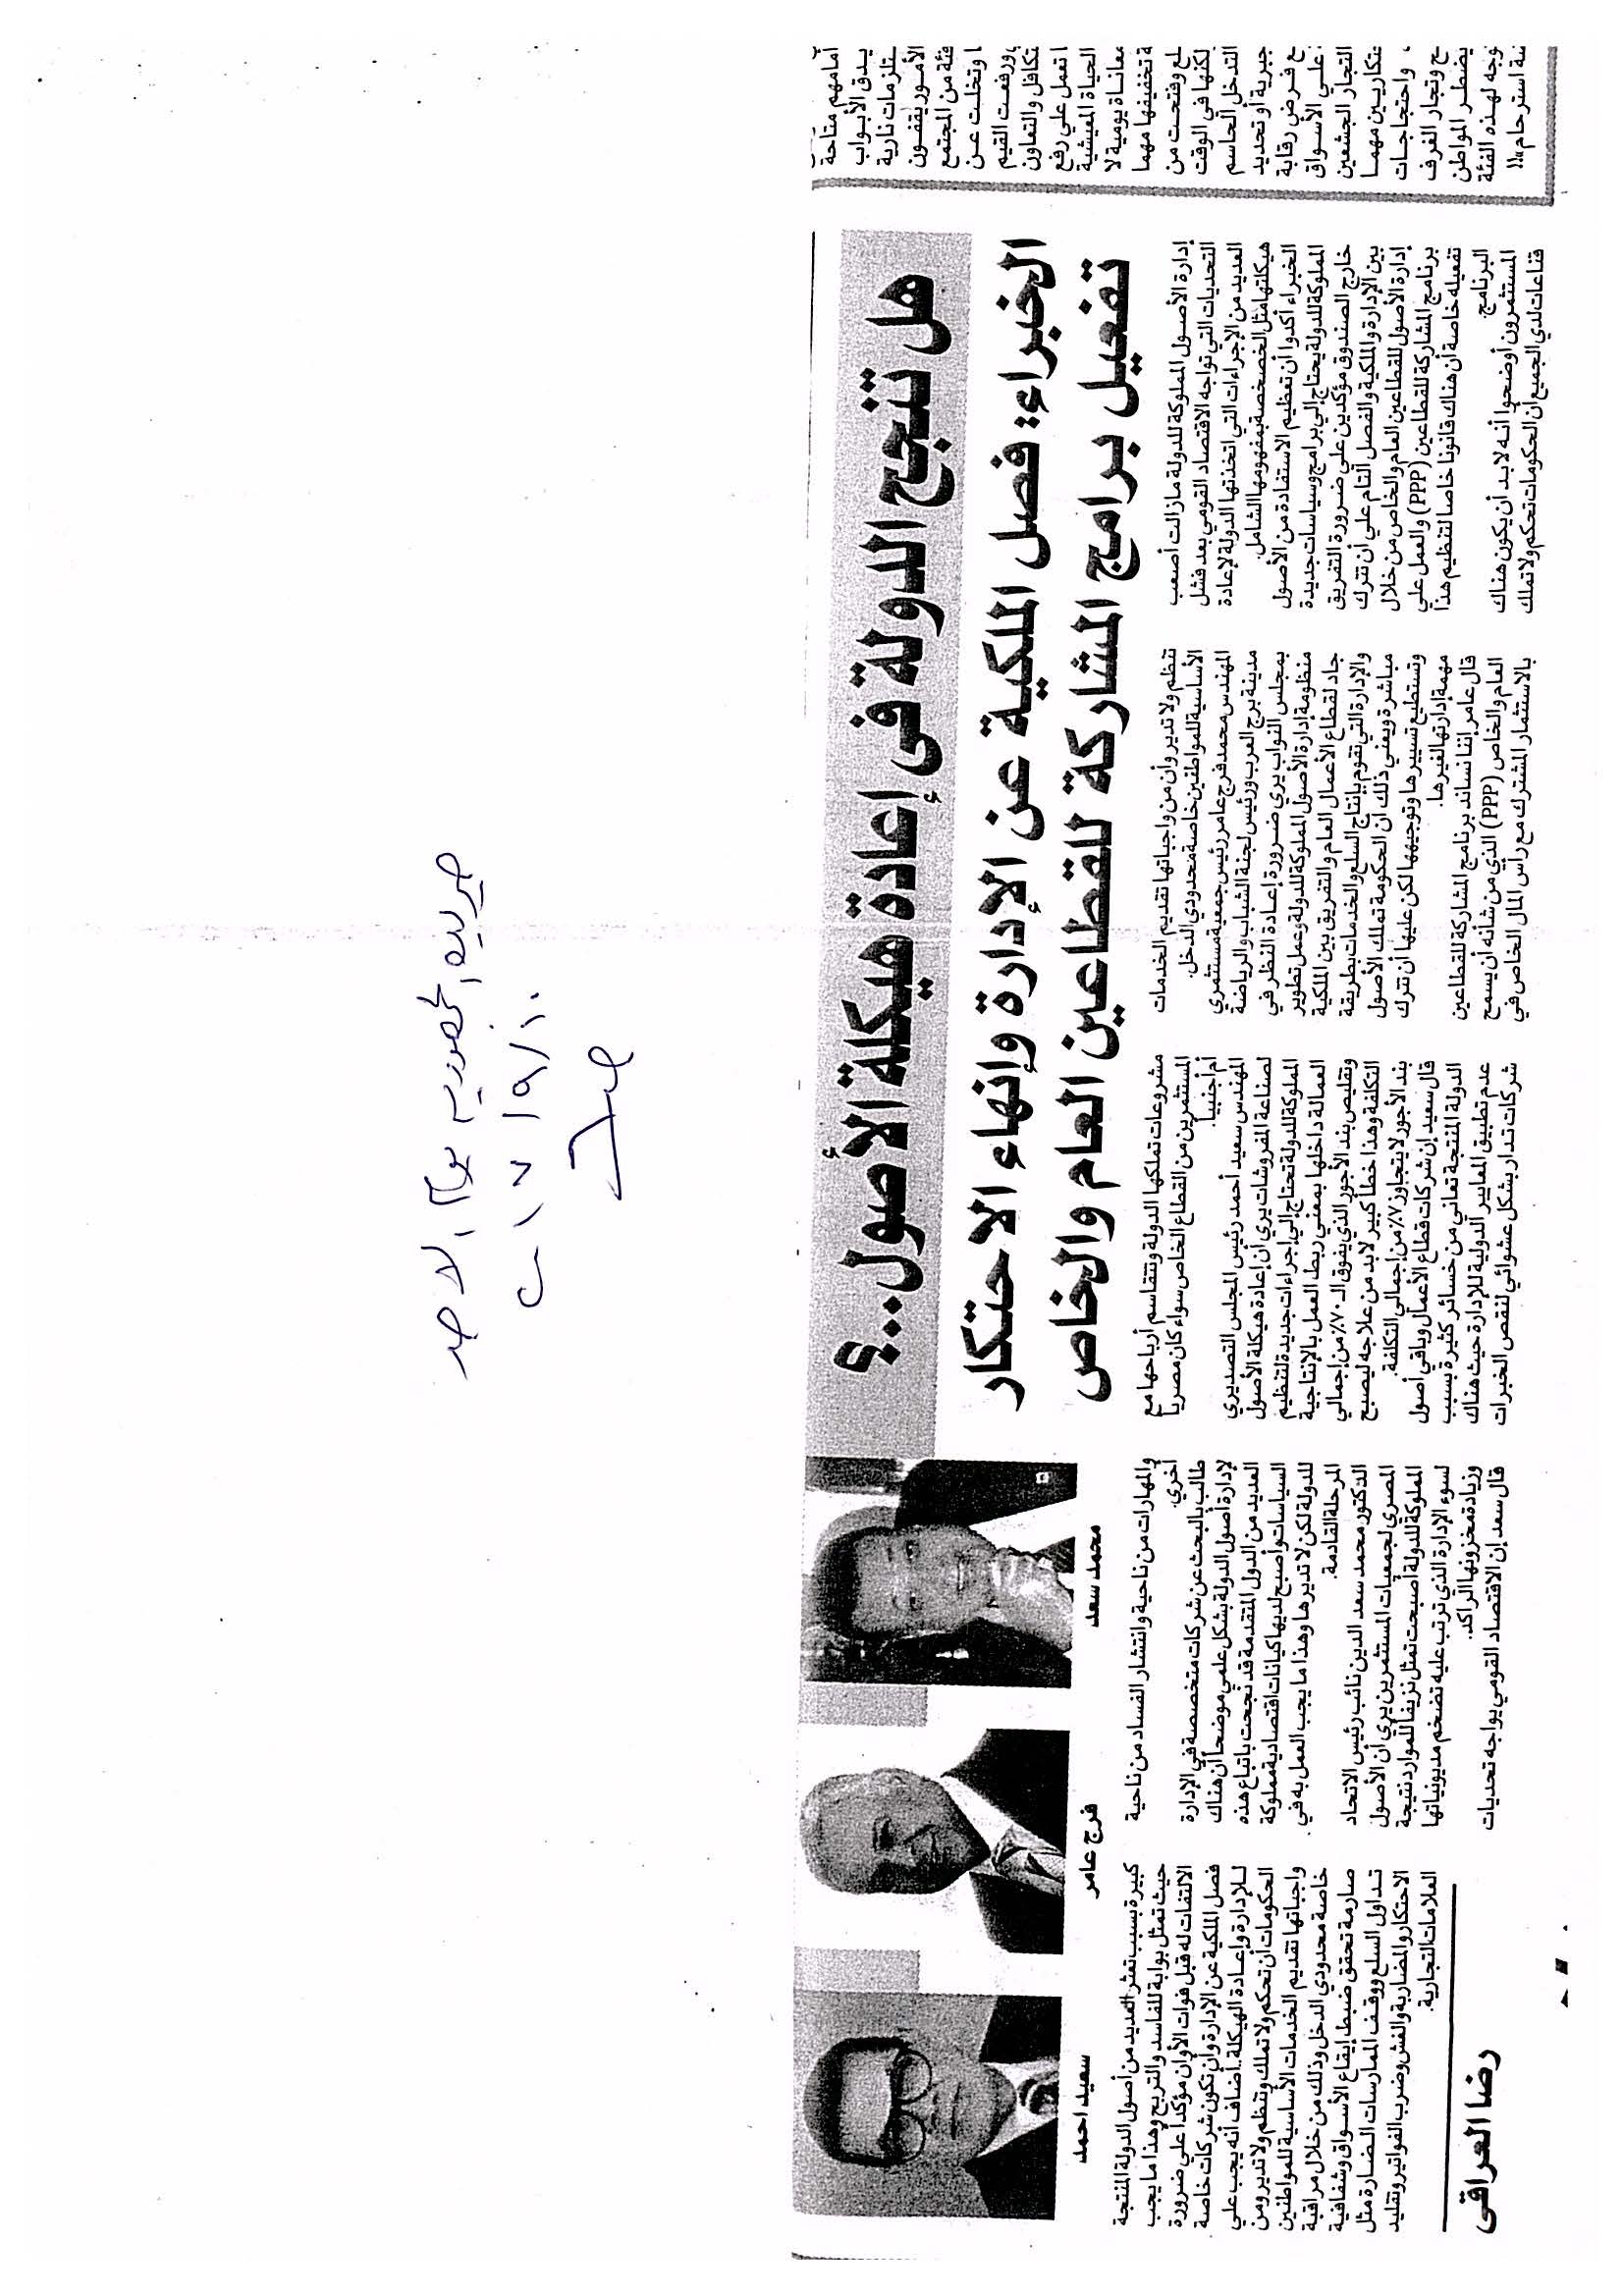 جريدة يوم الاحد
١٠/٩/٢٠١٧
هل تنجح الدولة فى إعادة هيكلة الأصول..؟
الخبراء: فصل الملكية عن الإدارة وإنهاء الاحتكار
تفعيل برامج المشاركة للقطاعين العام والخاص
إدارة الأصول المملوكة للدولة مازالت أصعب
التحديات التي تواجه الاقتصاد القومي بعد فشل
العديد من الإجراءات التي اتخذتها الدولة لإعادة
هيكلتها مثل الخصخصة بمفهومها الشامل.
الخبراء أكدوا أن تعظيم الاستفادة من الأصول
المملوكة للدولة يحتاج إلي برامج وسياسات جديدة
خارج الصندوق مؤكدين علي ضرورة التفريق
بين الإدارة والملكية والفصل التام علي أن تترك
إدارة الأصول للقطاعين العام والخاص من خلال
برنامج المشاركة للقطاعين (PPP) والعمل علي
تفعيله خاصة أن هناك قانونا خاصا لتنظيم هذا
البرنامج.
المستثمرون أوضحوا أنه لابد أن يكون هناك
قناعات لدي الجميع ان الحكومات تحكم ولا تملك
تنظم ولا تدير وأن من واجباتها تقديم الخدمات
الأساسية للمواطنين خاصة محدودي الدخل.
المهندس محمد فرج عامر رئيس جمعية مستثمري
مدينة برج العرب ورئيس لجنة الشباب والرياضة
بمجلس النواب يري ضرورة إعادة النظر في
منظومة إدارة الأصول المملوكة للدولة وعمل تطوير
جاد لقطاع الأعمال العام والتفريق بين الملكية
والإدارة التي تقوم بإنتاج السلع والخدمات بطريقة
مباشرة ويعني ذلك أن الحكومة تملك الأصول
وتستطيع تسييرها وتوجيهها لكن عليها أن تترك
مهمة إدارتها لغيرها.
قال عامر إننا نساند برنامج المشاركة للقطاعين
العام والخاص (PPP) الذي من شأنه أن يسمح
بالاستثمار المشترك مع رأس المال الخاص في
مشروعات تملكها الدولة وتتقاسم أرباحها مع
المستثمرين من القطاع الخاص سواء كان مصريا
أم أجنبيا.
المهندس سعيد أحمد رئيس المجلس التصديري
لصناعة المفروشات يري أن إعادة هيكلة الأصول
المملوكة للدولة تحتاج إلي إجراءات جديدة لتنظيم
العمالة داخلها بمعني ربط العمل بالإنتاجية
وتقليص بند الأجور الذي يفوق الـ ٧٠٪ من إجمالي
التكلفة وهذا خطأ كبير لابد من علاجه ليصبح
بند الأجور لا يتجاوز ٧٪ من إجمالي التكلفة.
قال سعيد إن شركات قطاع الأعمال وباقي أصول
الدولة المنتجة تعاني من خسائر كثيرة بسبب
عدم تطبيق المعايير الدولية للإدارة حيث هناك
شركات تدار بشكل عشوائي لنقص الخبرات
والمهارات من ناحية وانتشار الفساد من ناحية
أخري.
طالب بالبحث عن شركات متخصصة في الإدارة
لإدارة أصول الدولة بشكل علمي موضحا أن هناك
العديد من الدول المتقدمة قد نجحت باتباع هذه
السياسات وأصبح لديها كيانات اقتصادية مملوكة
للدولة لكن لا تديرها وهذا ما يجب العمل به في
المرحلة القادمة.
الدكتور محمد سعد الدين نائب رئيس الاتحاد
المصري لجمعيات المستثمرين يري أن الأصول
المملوكة للدولة أصبحت تمثل نزيفا للموارد نتيجة
لسوء الإدارة الذي ترتب عليه تضخم مديونياتها
وزيادة مخزونها الراكد.
قال سعد إن الاقتصاد القومي يواجه تحديات
كبيرة بسبب تعثر العديد من أصول الدولة المنتجة
حيث تمثل بوابة للفاسد والتربح وهذا ما يجب
الالتفات له قبل فوات الأوان مؤكدا علي ضرورة
فصل الملكية عن الإدارة وأن تكون شركات خاصة
للإدارة وإعادة الهيكلة. أضاف أنه يجب علي
الحكومات أن تحكم ولا تملك وتنظم ولا تدير ومن
واجباتها تقديم الخدمات الأساسية للمواطنين
خاصة محدودي الدخل وذلك من خلال مراقبة
صارمة تحقق ضبط إيقاع الأسواق وشفافية
تداول السلع ووقف الممارسات الضارة مثل
الاحتكار والمضاربة والغش وضرب الفواتير وتقليد
العلامات التجارية.
رضا العراقى
محمد سعد
فرج عامر
سعيد احمد
أمامهم متاحة
يدق الأبواب
تلزمات نارية
الأمور يقفون
فئة من المجتمع
ا وتخلت عن
ورفعت القيم
تكافل والتعاون
ا تعمل علي رفع
الحياة المعيشية
معاناة يومية لا
ة تخفيفها مهما
لع وفتحت من
لكنها في الوقت
التدخل الحاسم
جبرية أو تحديد
ع فرض رقابة
علي الأسواق
التجار الجشعين
حتكاريين مهما
، واحتجاجات
ح وتجار الغرف
يضطر المواطن
وجه لهذه الفئة
ة استرحام»!!